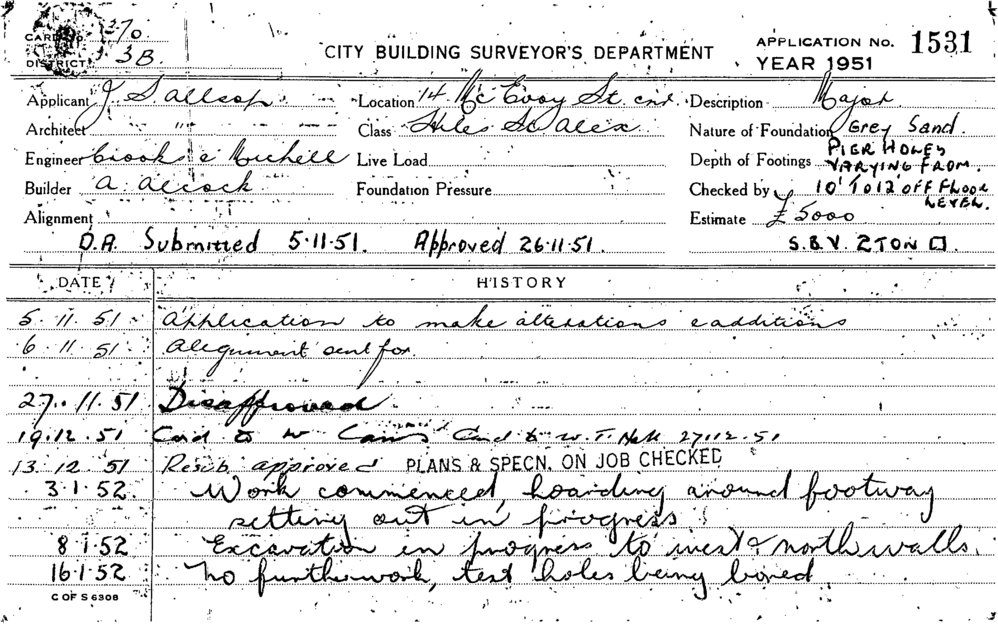 CARD No. 370
DISTRICT 3B.
CITY BUILDING SURVEYOR'S DEPARTMENT
APPLICATION No. 1531
YEAR 1951
Applicant J S Allsop
Location 14 McEvoy St cnr.
Description Major
Architect "
Class Hiles St Alex
Nature of Foundation Grey Sand.
Engineer Crooks & Michell
Live Load
Depth of Footings PIER HOLES VARYING FROM
Builder A. Alcock
Foundation Pressure
Checked by 10' TO 12 OFF FLOOR LEVEL.
Alignment
Estimate £5000
D.A. Submitted 5·11·51. Approved 26·11·51.
S.B.V. 2TON
DATE HISTORY
5. 11. 51 Application to make alterations & additions
6. 11. 51 Alignment sent for.
27. 11. 51 Disapproved
19.12.51 Card to W Card to W. T. Hall 27.12.51
13. 12. 51 Resub. approved PLANS & SPECN. ON JOB CHECKED
3.1.52. Work commenced, hoarding around footway
setting out in progress
8.1.52 Excavation in progress to west & north walls.
16.1.52 No further work, test holes being bored.
C OF S 6308